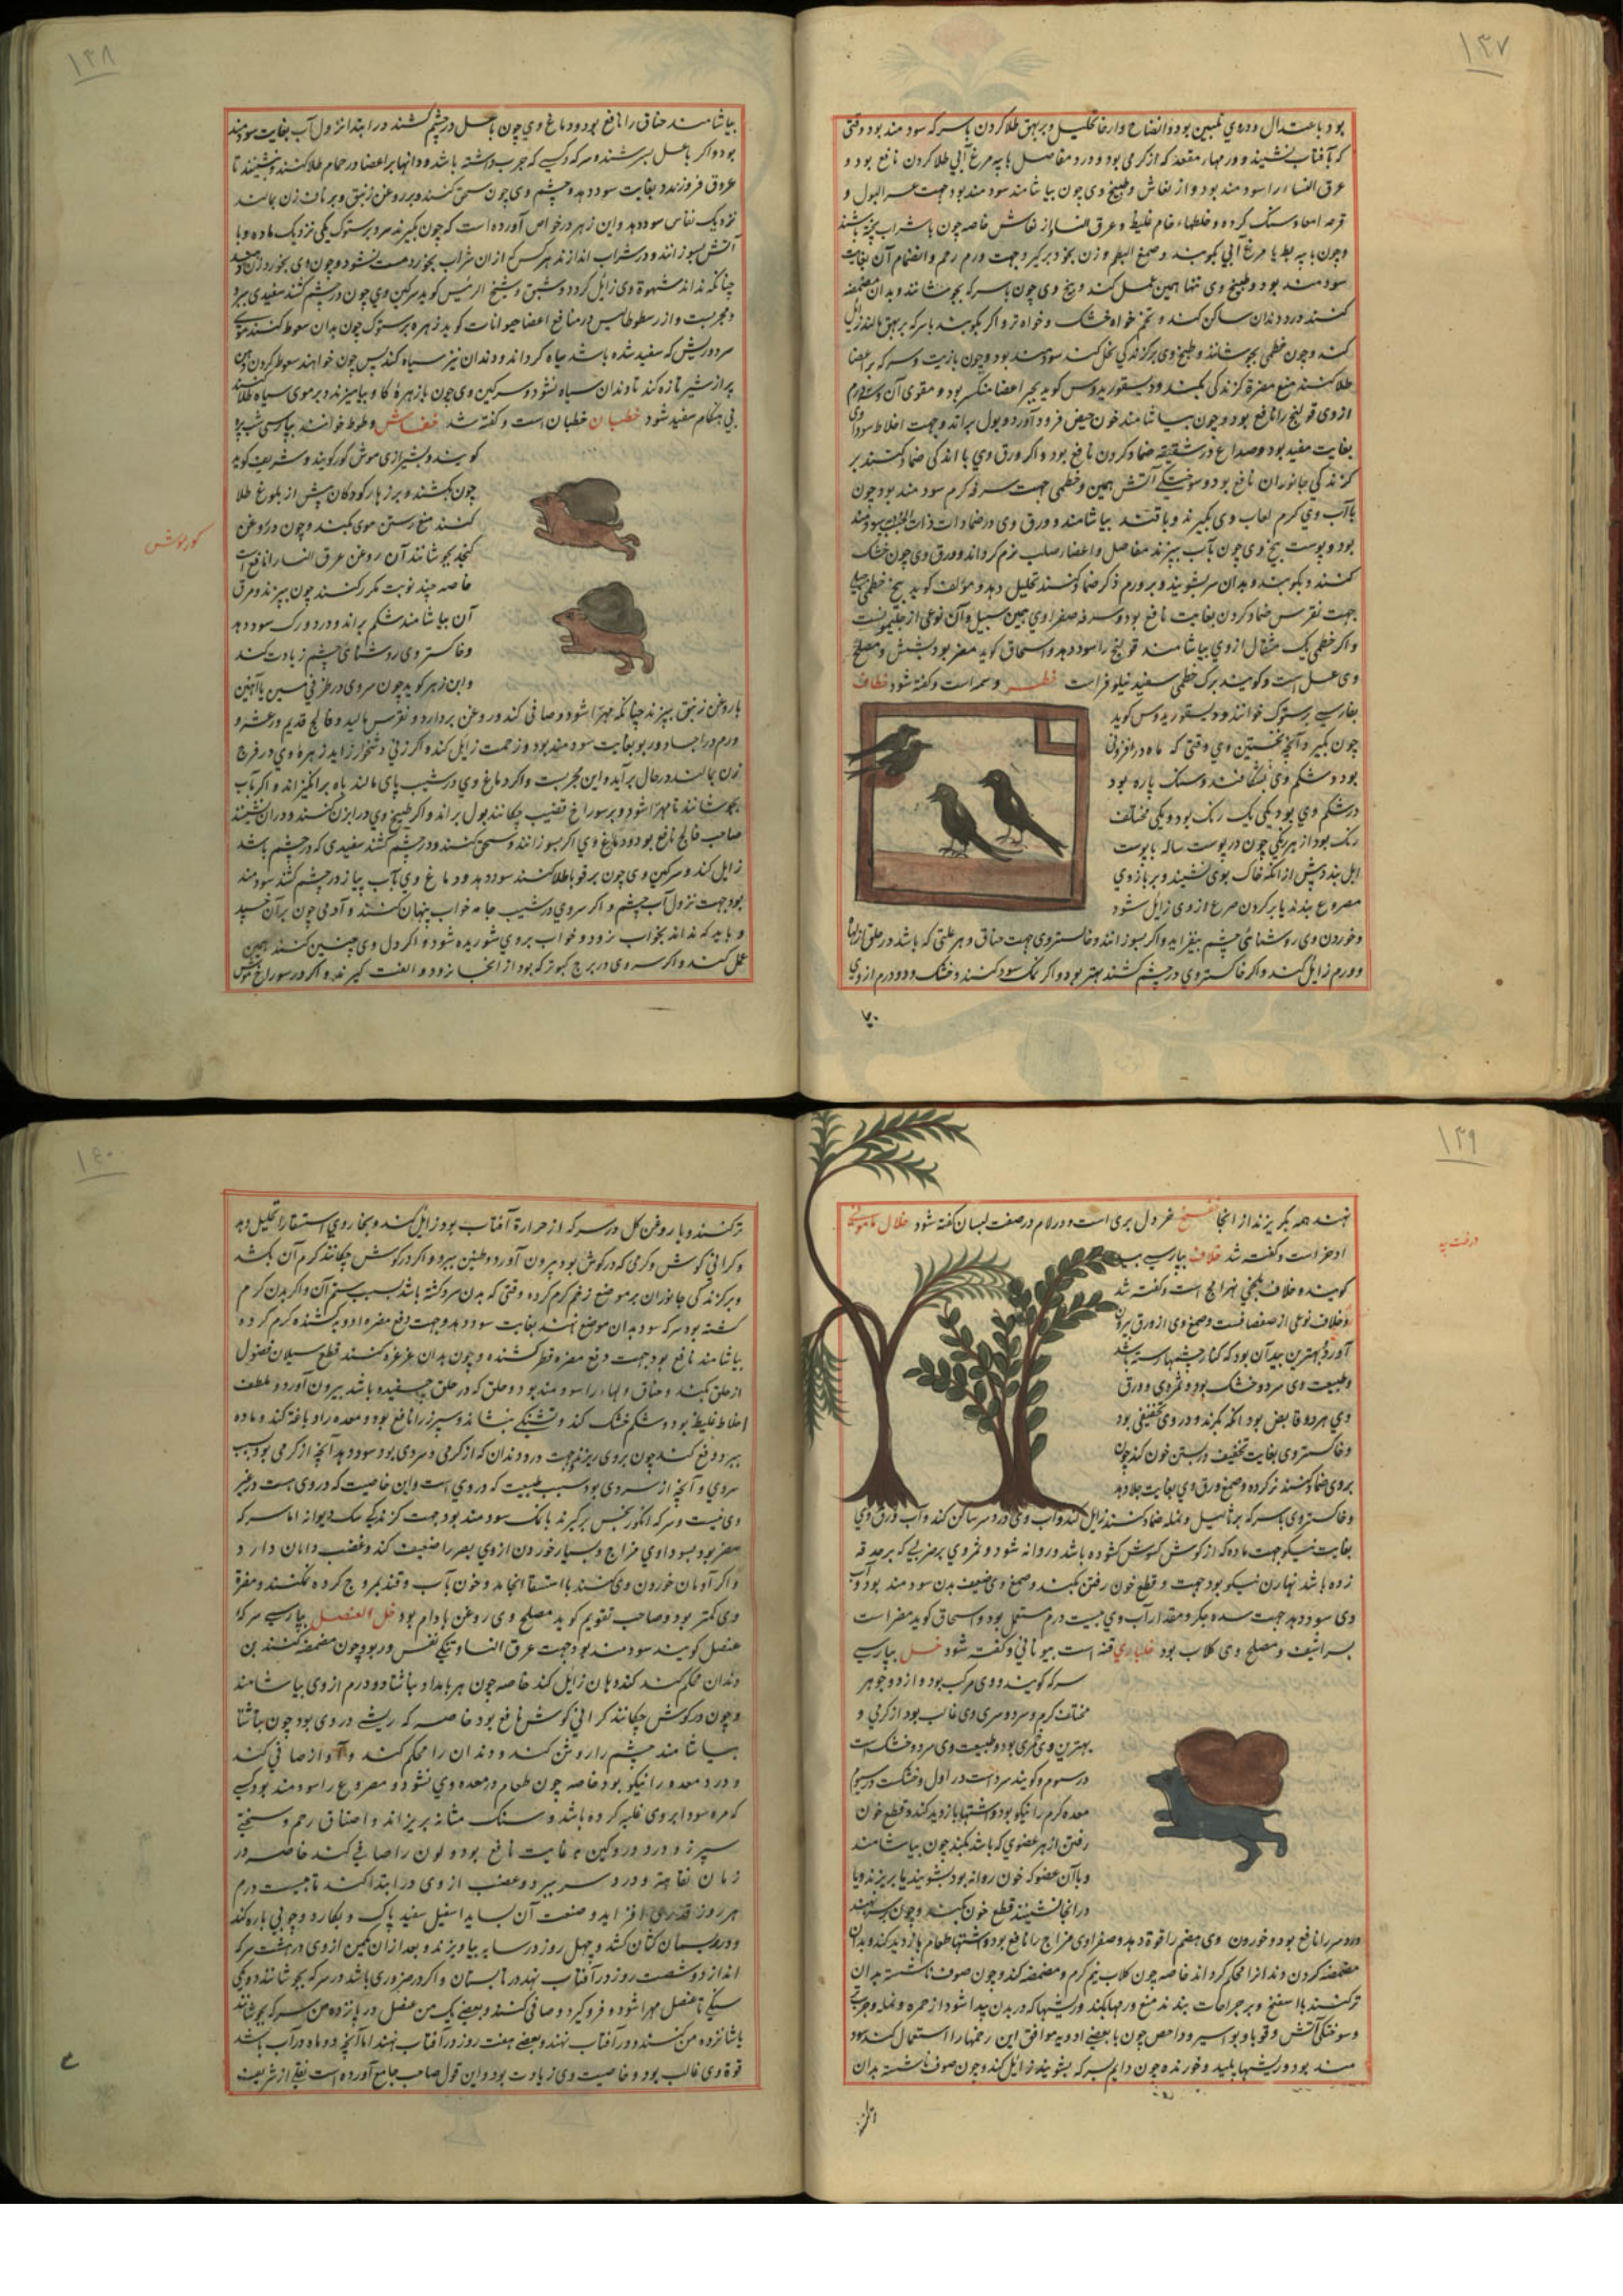 ۱۳۷
بود باعتدال و دروی تلیین بود و انضاج و ارخا و تحلیل و بر بهق طلا کردن با سرکه سود مند بود وقتی
که بآفتاب نشیند و ورمهاء مقعد که از گرمی بود و درد مفاصل با پیه مرغ آبی طلا کردن نافع بود و
عرق النساء را سود مند بود و از نفاش وطبیخ وی چون بیاشامند سود مند بود جهت عسر البول و
قرحه امعا و سنک گرده و خلطهاء خام غلیظ و عرق النسا و از نفاش خاصه چون با شراب پخته باشند
وچون با پیه بط یا مرغ آبی بکوبند و صمغ البطم و زن بخود برگیرد جهت ورم رحم و انضمام آن بغایت
سود مند بود و طبیخ وی تنها همین عمل کند و بیخ وی چون با سرکه بجوشانند و بدان مضمضه
کنند درد دندان ساکن کند و تخم خواه خشک و خواه تر و اکر بکوبند با سرکه بر بهق مالند زایل
کند و چون خطمی بجوشانند و طبیخ وی بر کزندکی نحل کنند سود مند بود و چون بازیت و سرکه بر اعضا
طلا کنند منع مضرة کزندکی بکند و دیسقوریدوس کوید
از وی قولنج را نافع بود و چون بیاشامند خون حیض فرود آورد و بول براند و جهت اخلاط سوداوی
بغایت مفید بود و صداع در شقیقه ضماد کردن نافع بود و اکر ورق وی با اندکی ضماد کنند بر
کزندکی جانوران نافع بود و سوختکی آتش همین و خطمی جهت سرفه کرم سود مند بود چون
باآب وی کرم لعاب وی بگیرند و با قند بیاشامند و ورق وی در ضمادات ذات الجنب سودمند
بود و پوست بیخ وی چون بآب بپزند مفاصل و اعضا صلب نرم کرداند و ورق وی چون خشک
کنند و بکوبند و بدان سر بشویند و بر ورم ذکر ضماد کنند تحلیل دهد و مؤلف کوید بیخ خطمی
جهت نقرس ضماد کردن بغایت نافع بود و سرفه صفراوی همین سبیل و آن نوعی از
واکر خطمی یک مثقال از وی بیاشامند قولنج را سود دهد و اسحاق کوید مضر بود بشش و مصلح
وی عسل است و کویند برک خطمی سفید نیلوفر است خطر وسمه است و کفته شود خطاف
بفارسی پرستوک خوانند و دیسقوریدوس کوید
چون بگیرد آنچه نخستین وی وقتی که ماه در افزونی
بود و شکم وی بشکافند دو سنک پاره بود
در شکم وی بود یکی یک رنک بود و یکی مختلف
رنک بود از هر یکی چون در پوست ساله با پوست
ایل بندد پیش از آنکه خاک بوی نشیند و بر بازوی
مصروع بندند یا بر کردن صرع از وی زایل شود
و خوردن وی روشنائی چشم بیفزاید و اکر بسوزانند و خاکستر وی جهت خناق و هر علتی که باشد در حلق از آنها
و ورم زایل کند و اکر خاکستر وی در چشم کشند بهتر بود و اکر نمک سود کنند و خشک و دو درم از وی
۱۳۸
بیاشامند خناق را نافع بود و دماغ وی چون باعسل در چشم کشند در ابتدا نزول آب بغایت سود مند
بود و اکر باعسل بسرشند و سرکه و کسی که جرب داشته باشد و دانها بر اعضا در حمام طلا کنند و بنشینند تا
عروق فروزند بغایت سود دهد و چشم وی چون سحق کنند و بر روغن زنبق و بر ناف زن بمالند
نزدیک نفاس سود دهد و ابن زهر در خواص آورده است که چون بکیرند سر پرستوک یکی نزدیک ماده و با
آتش بسوزانند و در شراب اندازند هر کس که از ان شراب بخورد مست نشود و چون وی بخورد زن دهند
چنانکه نداند شهوة وی زایل کردد و شبق و شیخ الرئیس کوید سرکین وی چون در چشم کشند سفیدی ببرد
و مجربست و از رسطوطالیس در منافع اعضا حیوانات کوید زهره پرستوک چون بدان سعوط کنند موی
سر و ریش که سفید شده باشد سیاه کرداند و دندان نیز سیاه کند پس چون خواهند سعوط کردن دهن
پر از شیر تازه کند تا دندان سیاه نشود و سرکین وی چون با زهره کاو بیامیزند و بر موی سیاه طلا کنند
بی هنکام سفید شود خطبان خطبان است و کفته شد خفاش وطوط خوانند بپارسی شب پره
کویند و بشیرازی موش کور کویند و شریف کوید
چون بکشند و بر زهار کودکان پیش از بلوغ طلا
کنند منع رستن موی بکند و چون در روغن
کنجد بجوشانند آن روغن عرق النسا را نافع است
خاصه چند نوبت مکرر کنند چون بپزند و مرق
آن بیاشامند شکم براند و درد ورک سود دهد
و خاکستر وی روشنائی چشم زیادت کند
و ابن زهر کوید چون سر وی در ظرفی مسین یا آهنین
کورموش
با روغن زنبق بپزند چنانکه مهرّا شود و صافی کند و روغن بردارد و نقرس مالید و فالج قدیم و رعشه و
ورم در اجساد و ربو بغایت سود مند بود و زحمت زایل کند و اکر زنی دشخوار زاید زهرهٔ وی در فرج
زن بمالند در حال برآید و این مجربست و اکر دماغ وی در شیب پای مالند باه برانکیزاند و اکر بآب
بجوشانند تا مهرّا شود و بر سوراخ قضیب چکانند بول براند و اکر طبیخ وی در ابزن کنند و در آن نشیند
صاحب فالج نافع بود و دماغ وی اکر بسوزانند و سحق کنند و در چشم کشند سفیدی که در چشم باشد
زایل کند و سرکین وی چون بر قوبا طلا کنند سود دهد و دماغ وی بآب پیاز در چشم کشند سود مند
بود جهت نزول آب چشم و اکر سر وی در شیب جامه خواب پنهان کنند و آدمی چون بر آن خسپد
و باید که نداند بخواب نرود و خواب بر وی شوریده شود و اکر دل وی چنین کنند همین
عمل کند و اکر سر وی در برج کبوتر که بود از آنجا نرود و الفت کیرند و اکر در سوراخ موش
۱۳۹
نهند همه بکریزند از انجا خردل بری است و در لام در صفت لبسان کفته شود خلال مامونی
اذخر است و کفته شد خلاف بپارسی بید
کویند و خلاف بلخی بهرامج است و کفته شد
و خلاف نوعی از صفصافست و صمغ وی از ورق بیرون
آورد و بهترین بید آن بود که کنار چشمها رسته باشد
و طبیعت وی سرد و خشک بود و ثمر وی و ورق
وی هر دو قابض بود انکه نکزند و در وی تجفیفی بود
و خاکستر وی بغایت تجفیف در بستن خون کند چون
بر وی ضماد کنند تر کرده و صمغ ورق وی بغایت جلا دهد
درخت بید
و خاکستر وی با سرکه بر ثآلیل و نمله ضماد کنند زایل کند و آب وی درد سر ساکن کند و آب ورق وی
بغایت نیکو جهت ماده که از کوش کشوده باشد و روانه شود و ثمر وی بر ضربی که بر حدقه
زده باشد نهادن نیکو بود جهت و قطع خون رفتن بکند و صمغ وی ضعیف بدن سود مند بود و آب
وی سود دهد جهت سده جکر و مقدار آب وی بیست درم مستعمل بود و اسحاق کوید مضر است
بسراشیف و مصلح وی کلاب بود قنه است بیونانی و کفته شود خل بپارسی
سرکه کویند و وی مرکب بود از دو جوهر
مختلف کرم و سرد و سردی وی غالب بود از کرمی و
بهترین وی خمری بود و طبیعت وی سرد و خشک است
در سوم و کویند سرد است در اول و خشکست در سیوم
معده کرم را نیکو بود و اشتها بازدید کند و قطع خون
رفتن از هر عضوی که باشد بکند چون بیاشامند
و با آن عضو که خون روانه بود بشویند یا بریزند و یا
در آنجا نشینند قطع خون بکند و چون بر سر نهند
درد سر را نافع بود و خوردن وی هضم را قوة دهد و صفراوی مزاج را نافع بود و اشتهاء طعام بازدید کند و بدان
مضمضه کردن دندان را محکم کرداند خاصه چون کلاب نیم کرم و مضمضه کند و چون صوف ناشسته بدان
تر کنند با اسفنج و بر جراحات بندند منع ورمها بکند و ریشها که در بدن پیدا شود از حمره و نمله و جرب
و سوختکی آتش و قوبا و بواسیر و داحس چون با بعضی ادویه موافق این زخمها را استعمال کنند سود
مند بود و ریشها پلید و خورنده چون دایم بسرکه بشویند زایل کند و چون صوف ناشسته بدان
۱۴۰
تر کنند و با روغن کل در سر که از حرارة آفتاب بود زایل کند و بخار وی استسقا را تحلیل دهد
و کرانی کوش و کرمی که در کوش بود بیرون آورد و طنین ببرد و اکر در کوش چکانند کرم آن بکشد
و بر کزندکی جانوران بر موضع زخم کرم کرده وقتی که بدن سرد کشته باشد بسبب سم آن و اکر بدن کرم
کشته بود سرکه سرد بدان موضع نهند بغایت سود دهد و جهت دفع مضرة ادویه کشنده کرم کرده
بیاشامند نافع بود جهت دفع مضرة فطر کشنده و چون بدان غرغره کنند قطع سیلان فضول
از حلق بکند و خناق و لهاة را سود مند بود و علق که در حلق چسفیده باشد بیرون آورد و ملطف
اخلاط غلیظ بود و شکم خشک کند و تشنکی بنشاند و سپرز را نافع بود و معده را دباغت کند و ماده
ببرد و دفع کند چون بر وی ریزند جهت درد دندان که از کرمی و سردی بود سود دهد آنچه از کرمی بود بسبب
سردی و آنچه از سردی بود بسبب طبیعت که در وی است و این خاصیت که در وی هست در غیر
وی نیست و سرکه انکور بکیرند با نمک سود مند بود جهت کزندکی سک دیوانه اما سرکه
مضر بود بسوداوی مزاج و بسیار خوردن از وی بصر را ضعیف کند و غضب دامان دارد
و اکر ادمان خوردن وی کنند با استسقا انجامد و چون بآب و قند ممزوج کرده کنند و مضرة
وی کمتر بود و صاحب تقویم کوید مصلح وی روغن بادام بود خل العنصل بپارسی سرکه
عنصل کویند سود مند بود جهت عرق النسا و تنکی نفس و ربو و چون مضمضه کنند بن
دندان محکم کند و کند دهان زایل کند خاصه چون هر بامداد بناشتا دو درم از وی بیاشامند
و چون در کوش چکانند کرانی کوش نافع بود خاصه که ریشی در وی بود چون بناشتا
بیاشامند چشم را روشن کند و دندان را محکم کند و آواز صافی کند
و درد معده را نیکو بود خاصه چون طعام در معده وی نشود و مصروع را سود مند بود و کسی
که مره سودا بر وی غلبه کرده باشد و سنک مثانه بریزاند و اختناق رحم و سختی
سپرز و درد ورکین بغایت نافع بود و لون را صافی کند خاصه در
زمان نقاهة و درد سر ببرد و عصب از وی در ابتدا کند تا بیست درم
هر روز قدری افزاید و صنعت آن بیاید اسقیل سفید پاک و بکارد چوبی پاره کند
و در ریسمان کتان کشد و چهل روز در سایه بیاویزند و بعد از ان یک من از وی در هشت سرکه
اندازد و شصت روز در آفتاب نهد در تابستان و اکر ضروری باشد در سرکه بجوشانند و یکی
سنکی تا عنصل مهرا شود و فرو کیرد و صافی کنند و بعضی یک من عنصل در پانزده من سرکه بجوشانند
یا شانزده من کنند و در آفتاب نهند و بعضی هفت روز در آفتاب نهند اما آنچه دو ماه در آب باشد
قوة وی غالب بود و خاصیت وی زیادت بود و این قول صاحب جامع آورده است بنقل از شریف